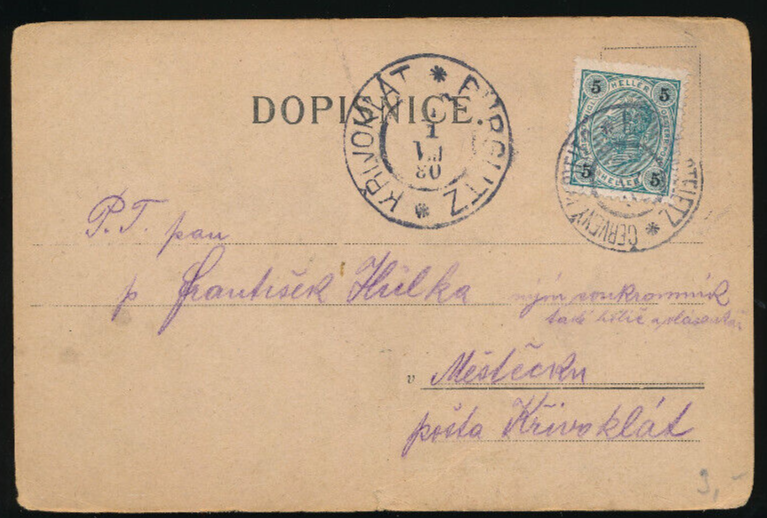 DOPISNICE.
KŘIVOKLÁT * PÜRGLITZ *
1
VII
03
5 HELLER 5
5 HELLER 5
ČERVENÝ * STELETZ
P. T. pan
p František Hůlka nyní soukromník
v Městečku
pošta Křivoklát
9,-